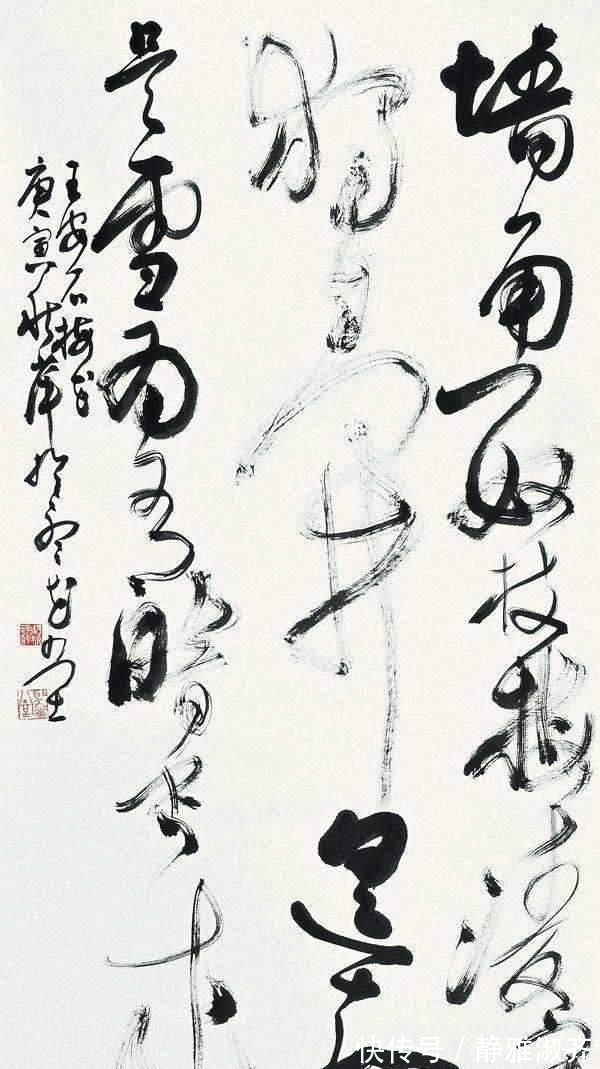 墙角数枝梅凌
独自开遥
是雪为有暗香来
王安石梅花
庚寅秋
快传号 / 静雅淑